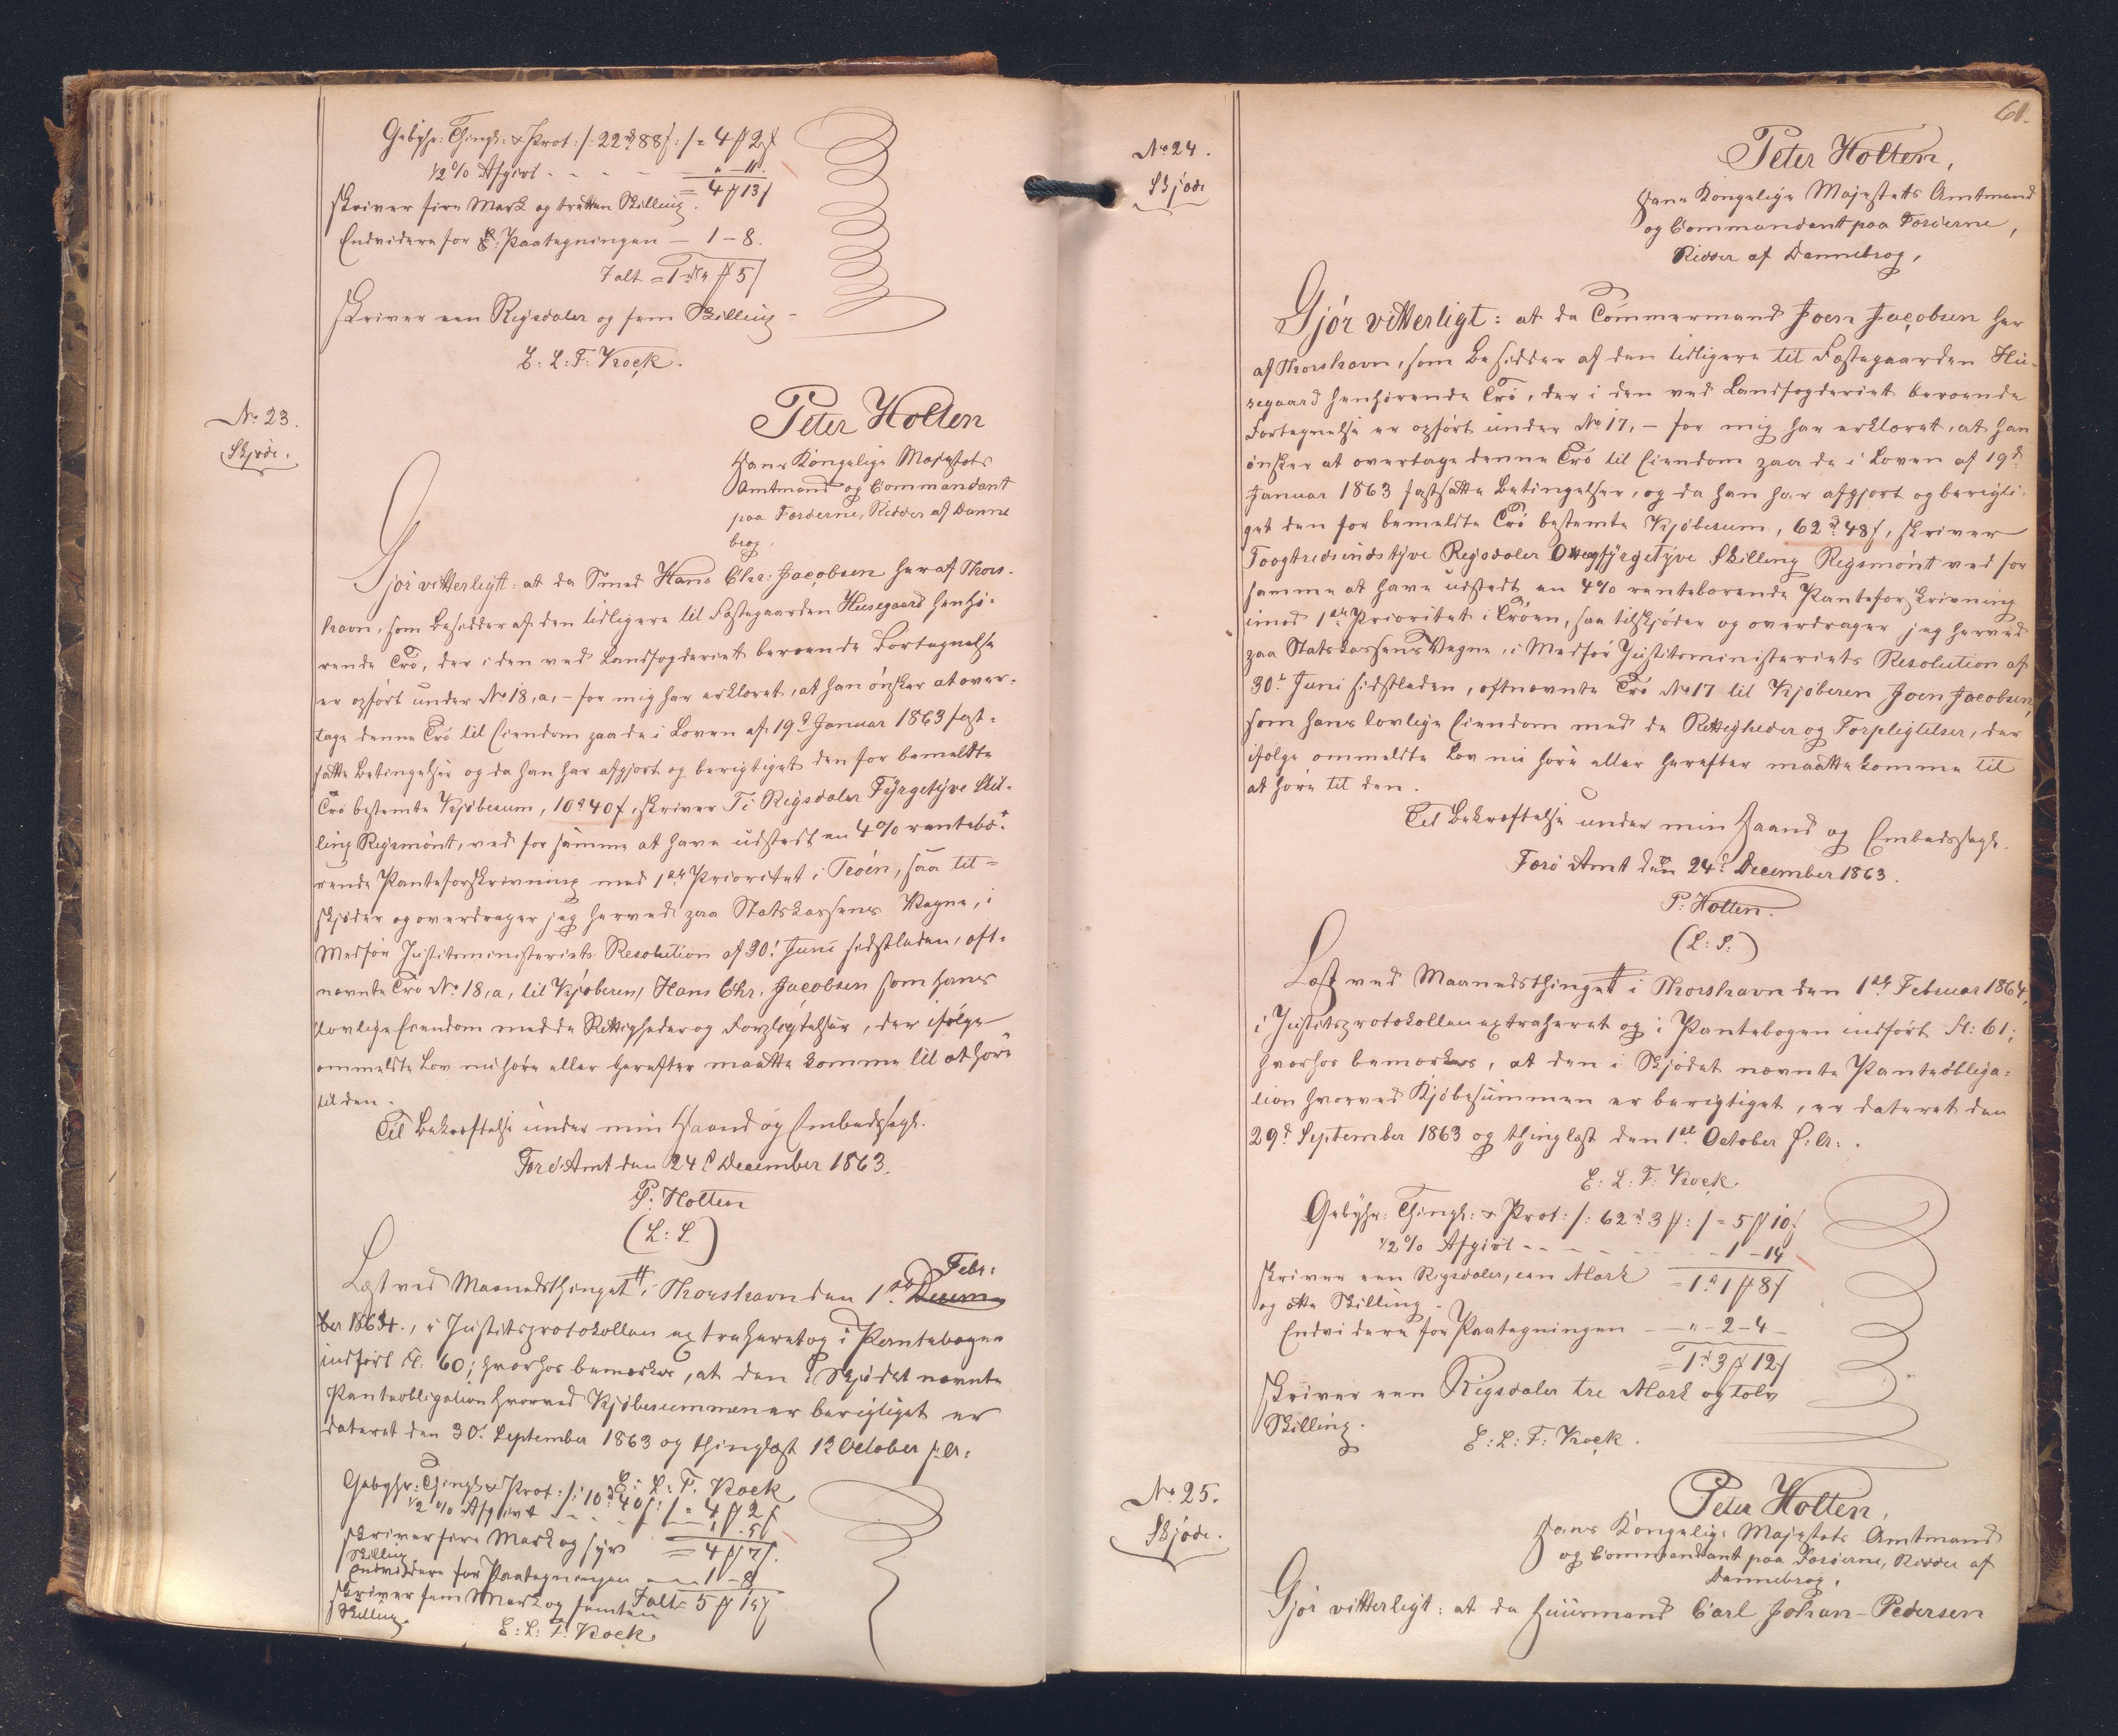 Gebyhr: Thingl: & Prot: /: 22 rd 88 s :/ = 4 # 2 s
1/2 % Afgivt - - - - " - 11.
= 4 # 13 s
skriver fire Mark og tretten Skilling.
Endvidere for Paategningen — 1 - 8.
Ialt = 1 rd " # 5 s
skriver een Rigsdaler og fem Skilling -
E. L. F. Kock.
No 23.
Skjøde.
Peter Holten
Hans Kongelige Majestæts
Amtmand og Commandant
paa Færøerne, Ridder af Danne
brog,
Gjør vitterligt: at da Smed Hans Chr: Jacobsen her af Thors-
havn, som Besidder af den tidligere til Fæstegaarden Husegaard henhø-
rende Trø, der i den ved Landfogderiet beroende Fortegnelse
er opført under No 18, a, - for mig har erklæret, at han ønsker at over-
tage denne Trø til Eiendom paa de i Loven af 19d Januar 1863 fast-
satte Betingelser og da han har afgjort og berigtiget den for bemeldte
Trø bestemte Kjøbesum, 10 rd 40 s, skriver Ti Rigsdaler Fyrgetyve Skil-
ling Rigsmønt, ved for samme at have udstedt en 4 % rentebæ-
rende Panteforskrivning med 1ste Prioritet i Trøen, saa til-
skjøder og overdrager jeg herved paa Statskassens Vegne, i
Medfør Justitsministeriets Resolution af 30t Juni sidstleden, oft-
nævnte Trø No 18, a, til Kjøberen, Hans Chr. Jacobsen som hans
lovlige Eiendom med de Rettigheder og Forpligtelser, der ifølge
ommeldte Lov nu høre eller herefter maatte komme til at høre
til den.
Til Bekræftelse under min Haand og Embedssegl.
Færø Amt den 24d December 1863.
P. Holten
(L: S.)
Læst ved Maanedsthinget i Thorshavn den 1ste Decem- Febr:
ber 1864., i Justitsprotokollen extraheret og i Pantebogen
indført Fl: 60; hvorhos bemærkes, at den i Skjødet nævnte
Panteobligation hvorved Kjøbesummen er berigtiget er
dateret den 30t September 1863 og thinglæst 1 October f: A:
E: L: F. Kock
Gebyhr: Thingl: & Prot: /: 10 rd 40 s :/ = 4 # 2 s
1/2 % Afgivt - - - - 5 s
skriver fire Mark og syv = 4 # 7 s.
Skilling
Endvidere for Paategningen — 1 - 8
skriver fem Mark og femten Ialt = 5 # 15 s
Skilling.
E: L: F. Kock
61.
No 24.
Skjøde
Peter Holten,
Hans Kongelige Majestæts Amtmand
og Commandant paa Færøerne,
Ridder af Dannebrog,
Gjør vitterligt: at da Tømmermand Joen Jacobsen her
af Thorshavn, som Besidder af den tidligere til Fæstegaarden Hu-
segaard henhørende Trø, der i den ved Landfogderiet beroende
Fortegnelse er opført under No 17, - for mig har erklæret, at han
ønsker at overtage denne Trø til Eiendom paa de i Loven af 19d
Januar 1863 fastsatte Betingelser, og da han har afgjort og berigti-
get den for bemeldte Trø bestemte Kjøbesum, 62 rd 48 s, skriver
Toogtredsindstyve Rigsdaler Otteogfyrgetyve Skilling Rigsmønt ved for
samme at have udstedt en 4 % rentebærende Panteforskrivning
imod 1ste Prioritet i Trøen, saa tilskjøder og overdrager jeg herved
paa Statskassens Vegne, i Medfør Justitsministeriets Resolution af
30t Juni sidstleden, oftnævnte Trø No 17 til Kjøberen Joen Jacobsen,
som hans lovlige Eiendom med de Rettigheder og Forpligtelser, der
ifølge ommeldte Lov nu høre eller herefter maatte komme til
at høre til den.
Til Bekræftelse under min Haand og Embedssegl.
Færø Amt den 24d December 1863.
P. Holten.
(L: S:)
Læst ved Maanedsthinget i Thorshavn den 1ste Februar 1864,
i Justitsprotokollen extraheret og i Pantebogen indført Fl: 61;
hvorhos bemærkes, at den i Skjødet nævnte Panteobliga-
tion hvorved Kjøbesummen er berigtiget, er dateret den
29d September 1863 og thinglæst den 1ste October f: A: .
E: L: F: Kock
Gebyhr: Thingl: & Prot: /: 62 rd 3 # :/ = 5 # 10 s
1/2 % Afgivt - - - - - 1 - 14
skriver een Rigsdaler, een Mark = 1 rd 1 # 8 s
og otte Skilling.
Endvidere for Paategningen — " - 2 - 4 -
= 1 rd 3 # 12 s
skriver een Rigsdaler tre Mark og tolv
Skilling.
E: L: F: Kock.
No 25.
Skjøde.
Peter Holten,
Hans Kongelige Majestæts Amtmand
og Commandant paa Færøerne, Ridder af
Dannebrog,
Gjør vitterligt: at da Huusmand Carl Johan Pedersen